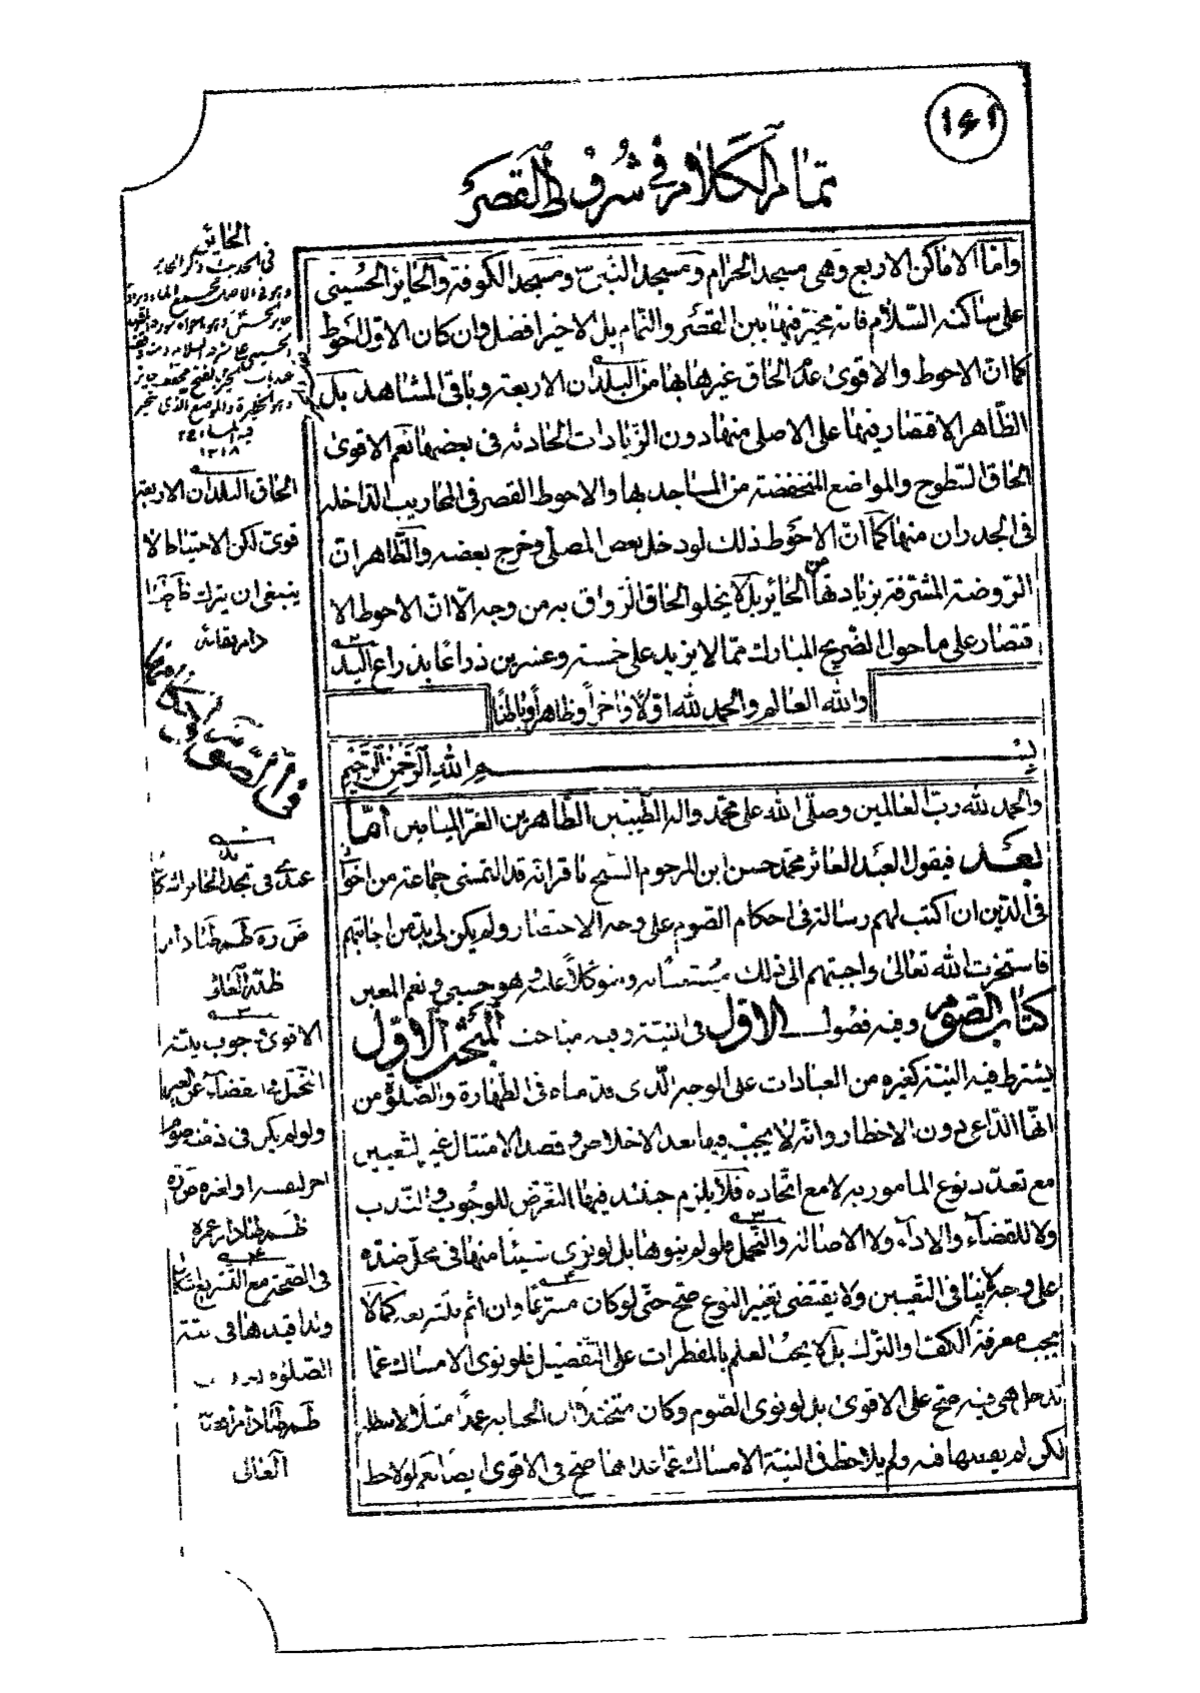 ١٤١
تمام الكلام في شروط القصر
وامّا الاماكن الاربع وهى مسجد الحرام ومسجد النبىّ ومسجد الكوفة والحائر الحسينى
على ساكنه السّلام فانه مخيّر فيها بين القصر والتمام بل الاخير افضل وان كان الاوّل احوط
كما انّ الاحوط والاقوى عدم الحاق غيرها بها من البلدان الاربعة وباقى المشاهد بل
الظّاهر الاقتصار فيها على الاصلى منها دون الزيادات الحادثه فى بعضها نعم الاقوى
الحاق السّطوح والمواضع المنخفضة من المساجد بها والاحوط القصر فى المحاريب الداخله
فى الجدران منها كما انّ الاحوط ذلك لو دخل بعض المصلّى وخرج بعضه والظّاهر انّ
الرّوضة المشرّفة بزيادتها من الحائر بل لا يخلو الحاق الرّواق به من وجه الّا انّ الاحوط الا
قتصار على ما حول الضّريح المبارك ممّا لا يزيد على خمسة وعشرين ذراعا بذراع اليد
والله العالم والحمد لله اوّلا واخرا وظاهرا وباطنا
بسم الله الرّحمن الرّحيم
والحمد لله ربّ العالمين وصلّى الله على محمّد واله الطّيبين الطّاهرين الغرّ الميامين امّا
بعد فيقول العبد العاثر محمّد حسن ابن المرحوم الشيخ باقر انه قد التمسنى جماعة من اخوا
فى الدّين ان اكتب لهم رسالة فى احكام الصّوم على وجه الاختصار ولم يكن لى بدّ من اجابتهم
فاستخرت الله تعالى واجبتهم الى ذلك مستعينا به ومتوكّلا عليه وهو حسبى ونعم المعين
كتاب الصّوم وفيه فصول الاوّل فى النيّة وفيه مباحث المبحث الاوّل
يشترط فيه النيّة كغيره من العبادات على الوجه الّذى قدّمناه فى الطّهارة والصّلوة من
انّها الدّاعى دون الاخطار وانّه لا يجب فيها بعد الاخلاص وقصد الامتثال غير التعيين
مع تعدّد نوع المامور به لا مع اتّحاده فلا يلزم حينئذ فيها التعرّض للوجوب والنّدب
ولا للقضاء والاداء ولا الاصالة والتحمّل فلو لم ينوها بل لو نوى شيئا منها فى محلّ ضدّه
على وجه لا ينافى التّعيين ولا يقتضى تغيير النوع صحّ حتّى لو كان مشرّعا وان اثم بتشريعه كما لا
يجب معرفة الكفّ والترك بل لا يجب العلم بالمفطرات على التّفصيل فلو نوى الامساك عمّا
تدخل هى فيه صحّ على الاقوى بل لو نوى الصّوم وكان متخيّلا انّ الجنابه عمدا مثلا لا تبطله
لكن لم يعتبرها فيه ولم يلاحظ فى النيّة الامساك عمّا عداها صحّ فى الاقوى ايضا نعم لو لاحظ
الحائر
فى الحديث ذكر الحائر
الحاق البلدان الاربعة
قوىّ لكن الاحتياط لا
ينبغى ان يترك
دام بقائه
فى الصّوم واحكامه
عندى فى تحديد الحائر
مدّ ظلّه العالى
الاقوى وجوب نيّة
التحمّل فى القضاء عن الغير
ولو لم يكن فى ذمّته صوم
اخر لنفسه او لغيره
دام عمره
فى الصّحة مع التّشريع اشكال
وقد اقيدها فى نيّة
الصّلوة
العالى